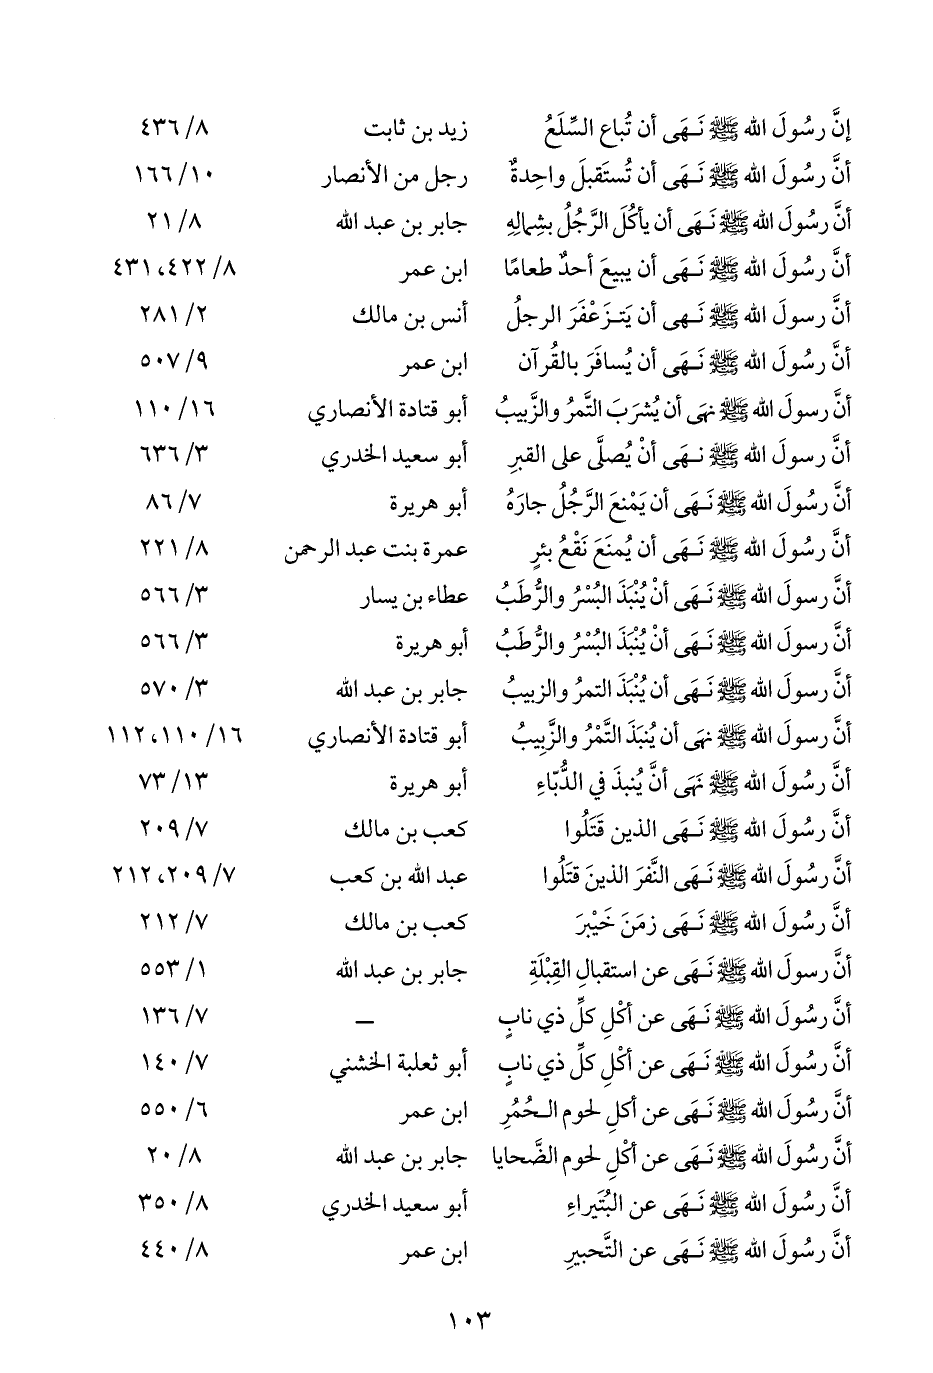 إنَّ رسُولَ الله ﷺ نَـهَى أن تُباع السِّلَعُ زيد بن ثابت ٨/ ٤٣٦
أنَّ رسُولَ الله ﷺ نَـهَى أن تُستَقبلَ واحِدةٌ رجل من الأنصار ١٠/ ١٦٦
أنَّ رسُولَ الله ﷺ نَـهَى أن يأكُلَ الرَّجُلُ بشِمالِهِ جابر بن عبد الله ٨/ ٢١
أنَّ رسُولَ الله ﷺ نَـهَى أن يبيعَ أحدٌ طعامًا ابن عمر ٨/ ٤٢٢، ٤٣١
أنَّ رسولَ الله ﷺ نَـهى أن يَتـزَعْفَرَ الرجلُ أنس بن مالك ٢/ ٢٨١
أنَّ رسُولَ الله ﷺ نَـهَى أن يُسافَرَ بالقُرآن ابن عمر ٩/ ٥٠٧
أنَّ رسولَ الله ﷺ نهَى أن يُشرَبَ التَّمرُ والزَّبيبُ أبو قتادة الأنصاري ١٦/ ١١٠
أنَّ رسُولَ الله ﷺ نـهَى أنْ يُصلَّى على القبرِ أبو سعيد الخدري ٣/ ٦٣٦
أنَّ رسُولَ الله ﷺ نَـهَى أن يَمْنعَ الرَّجُلُ جارَهُ أبو هريرة ٧/ ٨٦
أنَّ رسُولَ الله ﷺ نَـهَى أن يُمنَعَ نَقْعُ بئرٍ عمرة بنت عبد الرحمن ٨/ ٢٢١
أنَّ رسولَ الله ﷺ نَـهَى أنْ يُنْبَذَ البُسْرُ والرُّطَبُ عطاء بن يسار ٣/ ٥٦٦
أنَّ رسولَ الله ﷺ نَـهَى أنْ يُنْبَذَ البُسْرُ والرُّطَبُ أبو هريرة ٣/ ٥٦٦
أنَّ رسولَ الله ﷺ نَـهَى أن يُنْبَذَ التمرُ والزبيبُ جابر بن عبد الله ٣/ ٥٧٠
أنَّ رسولَ الله ﷺ نهَى أن يُنبَذَ التَّمْرُ والزَّبِيبُ أبو قتادة الأنصاري ١٦/ ١١٠، ١١٢
أنَّ رسُولَ الله ﷺ نَهَى أنَّ يُنبذَ في الدُّبّاءِ أبو هريرة ١٣/ ٧٣
أنَّ رسُولَ الله ﷺ نَـهَى الذين قَتَلُوا كعب بن مالك ٧/ ٢٠٩
أنَّ رسُولَ الله ﷺ نَـهَى النَّفرَ الذينَ قتَلُوا عبد الله بن كعب ٧/ ٢٠٩، ٢١٢
أنَّ رسُولَ الله ﷺ نَـهَى زمَنَ خَيْبرَ كعب بن مالك ٧/ ٢١٢
أنَّ رسولَ الله ﷺ نَـهَى عن استقبالِ القِبْلَةِ جابر بن عبد الله ١/ ٥٥٣
أنَّ رسُولَ الله ﷺ نَـهَى عن أكْلِ كلِّ ذي نابٍ — ٧/ ١٣٦
أنَّ رسُولَ الله ﷺ نَـهَى عن أكْلِ كلِّ ذي نابٍ أبو ثعلبة الخشني ٧/ ١٤٠
أنَّ رسُولَ الله ﷺ نَـهَى عن أكلِ لحوم الـحُمُرِ ابن عمر ٦/ ٥٥٠
أنَّ رسُولَ الله ﷺ نَـهَى عن أكْلِ لحوم الضَّحايا جابر بن عبد الله ٨/ ٢٠
أنَّ رسُولَ الله ﷺ نَـهَى عن البُتَيراءِ أبو سعيد الخدري ٨/ ٣٥٠
أنَّ رسُولَ الله ﷺ نَـهَى عن التَّحبيرِ ابن عمر ٨/ ٤٤٠
١٠٣